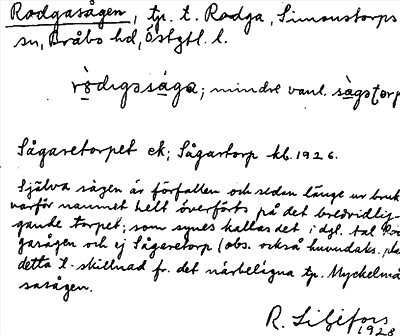 Rodgasågen, tp. t. Rodga, Simonstorps
sn, Bråbo hd, Östgtl. l.
rồdıgssága; mindre vanl. ságstorp
Sågaretorpet ek; Sågartorp kb. 1926.
Själva sågen är förfallen och sedan länge ur bruk
varför namnet helt överförts på det bredvidlig-
gande torpet, som synes kallas det i dgl. tal Rod
gasågen och ej Sågaretorp (obs. också huvudaks.
detta t. skillnad fr. det närbelägna tp. Myckelmo
sasågen.
R. Liljefors
1928